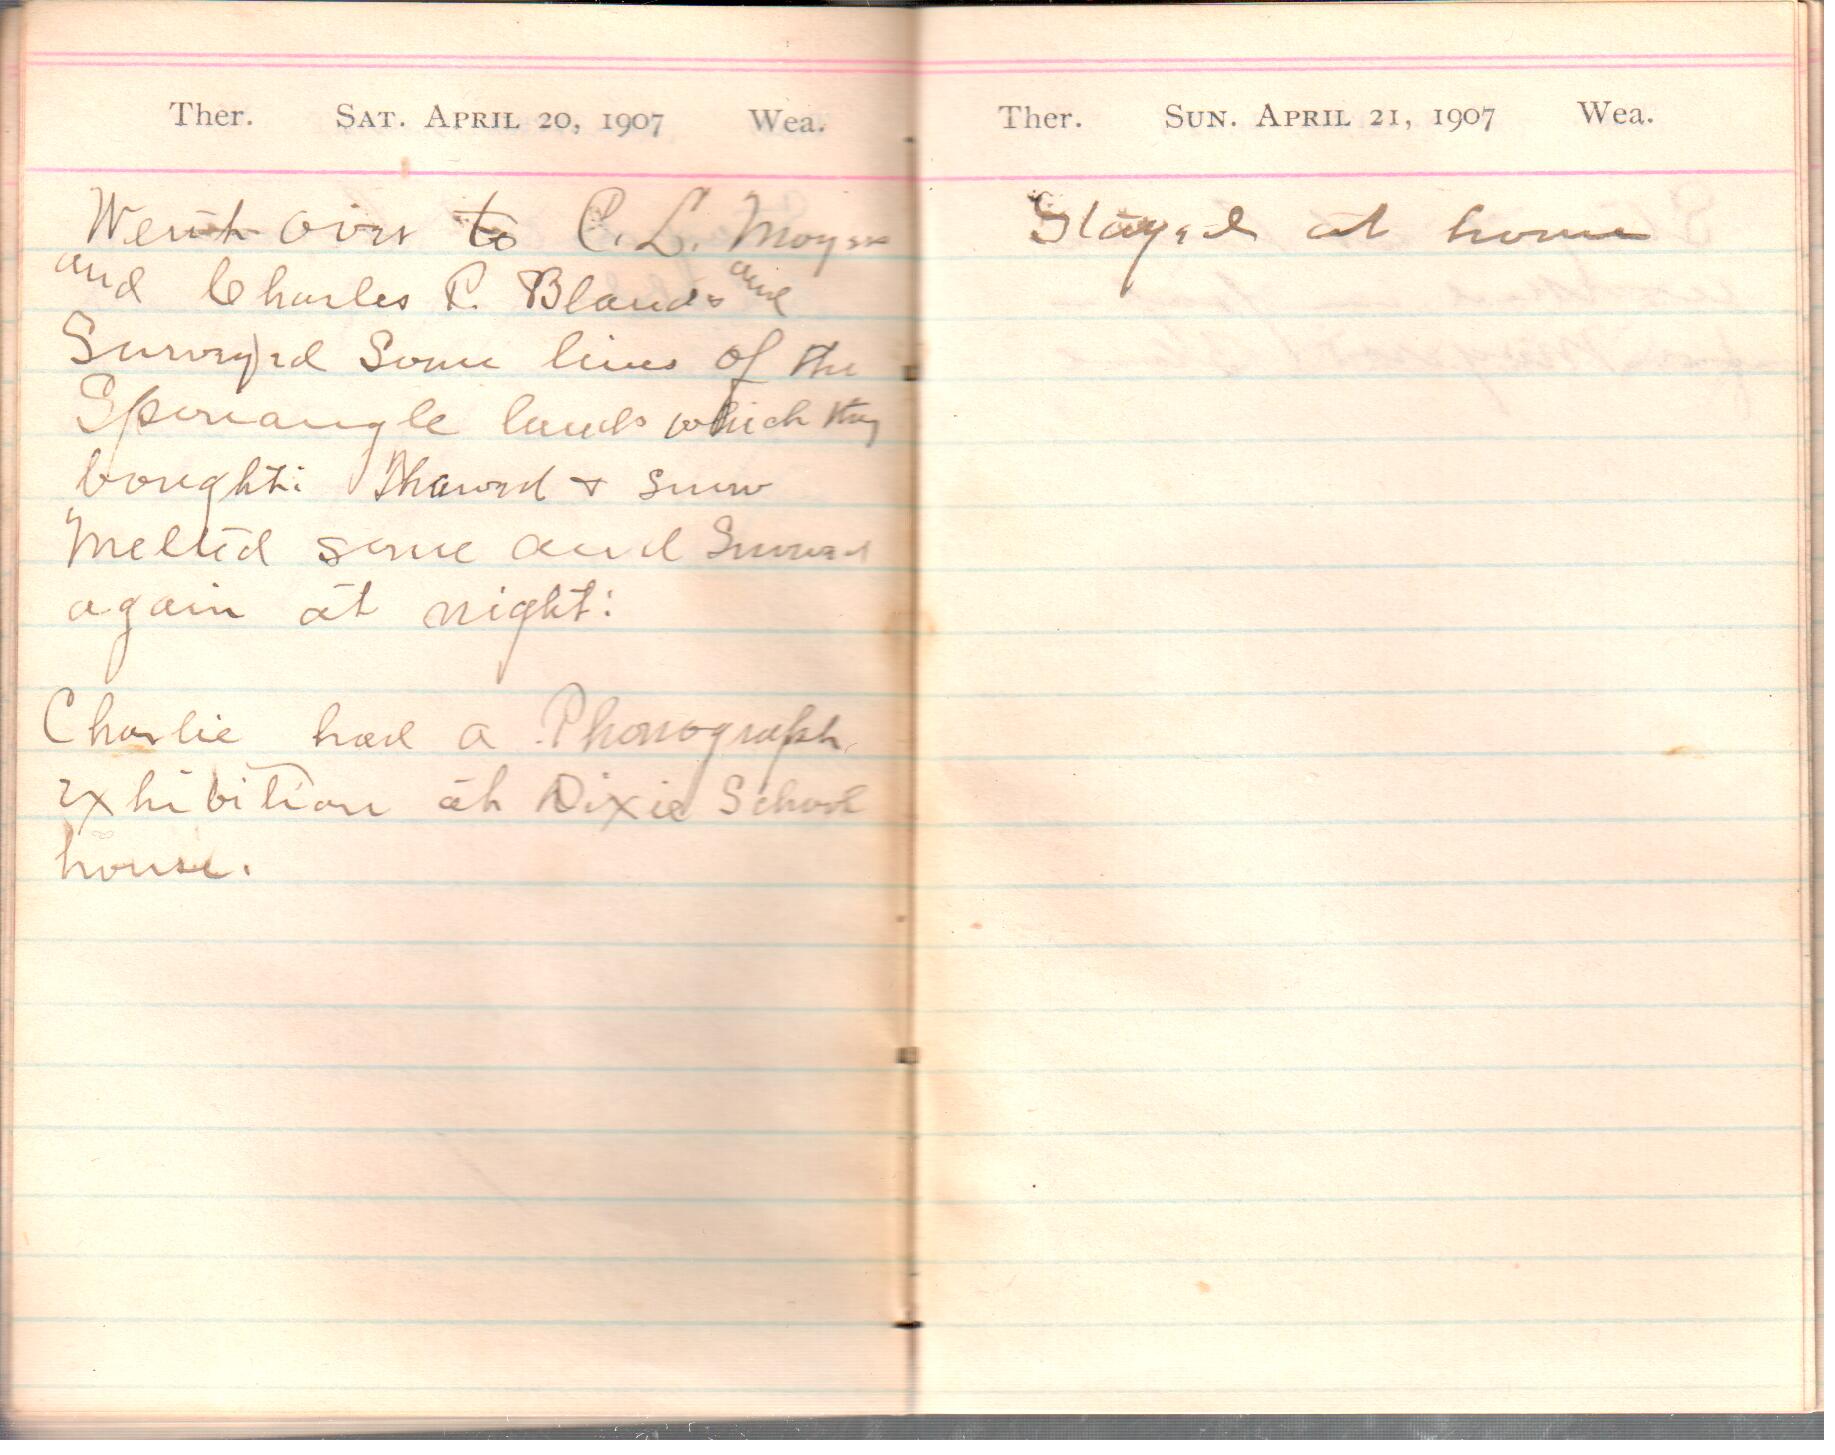 Ther. Sat. April 20, 1907 Wea.
Went over to C. L. Moyers
and Charles P. Blands and
Surveyed Some lines of the
Sponaugle lands which they
bought: Thawed & snow
Melted some and Snowed
again at night:
Charlie had a Phonograph
exhibition at Dixie School
house.
Ther. Sun. April 21, 1907 Wea.
Stayed at home